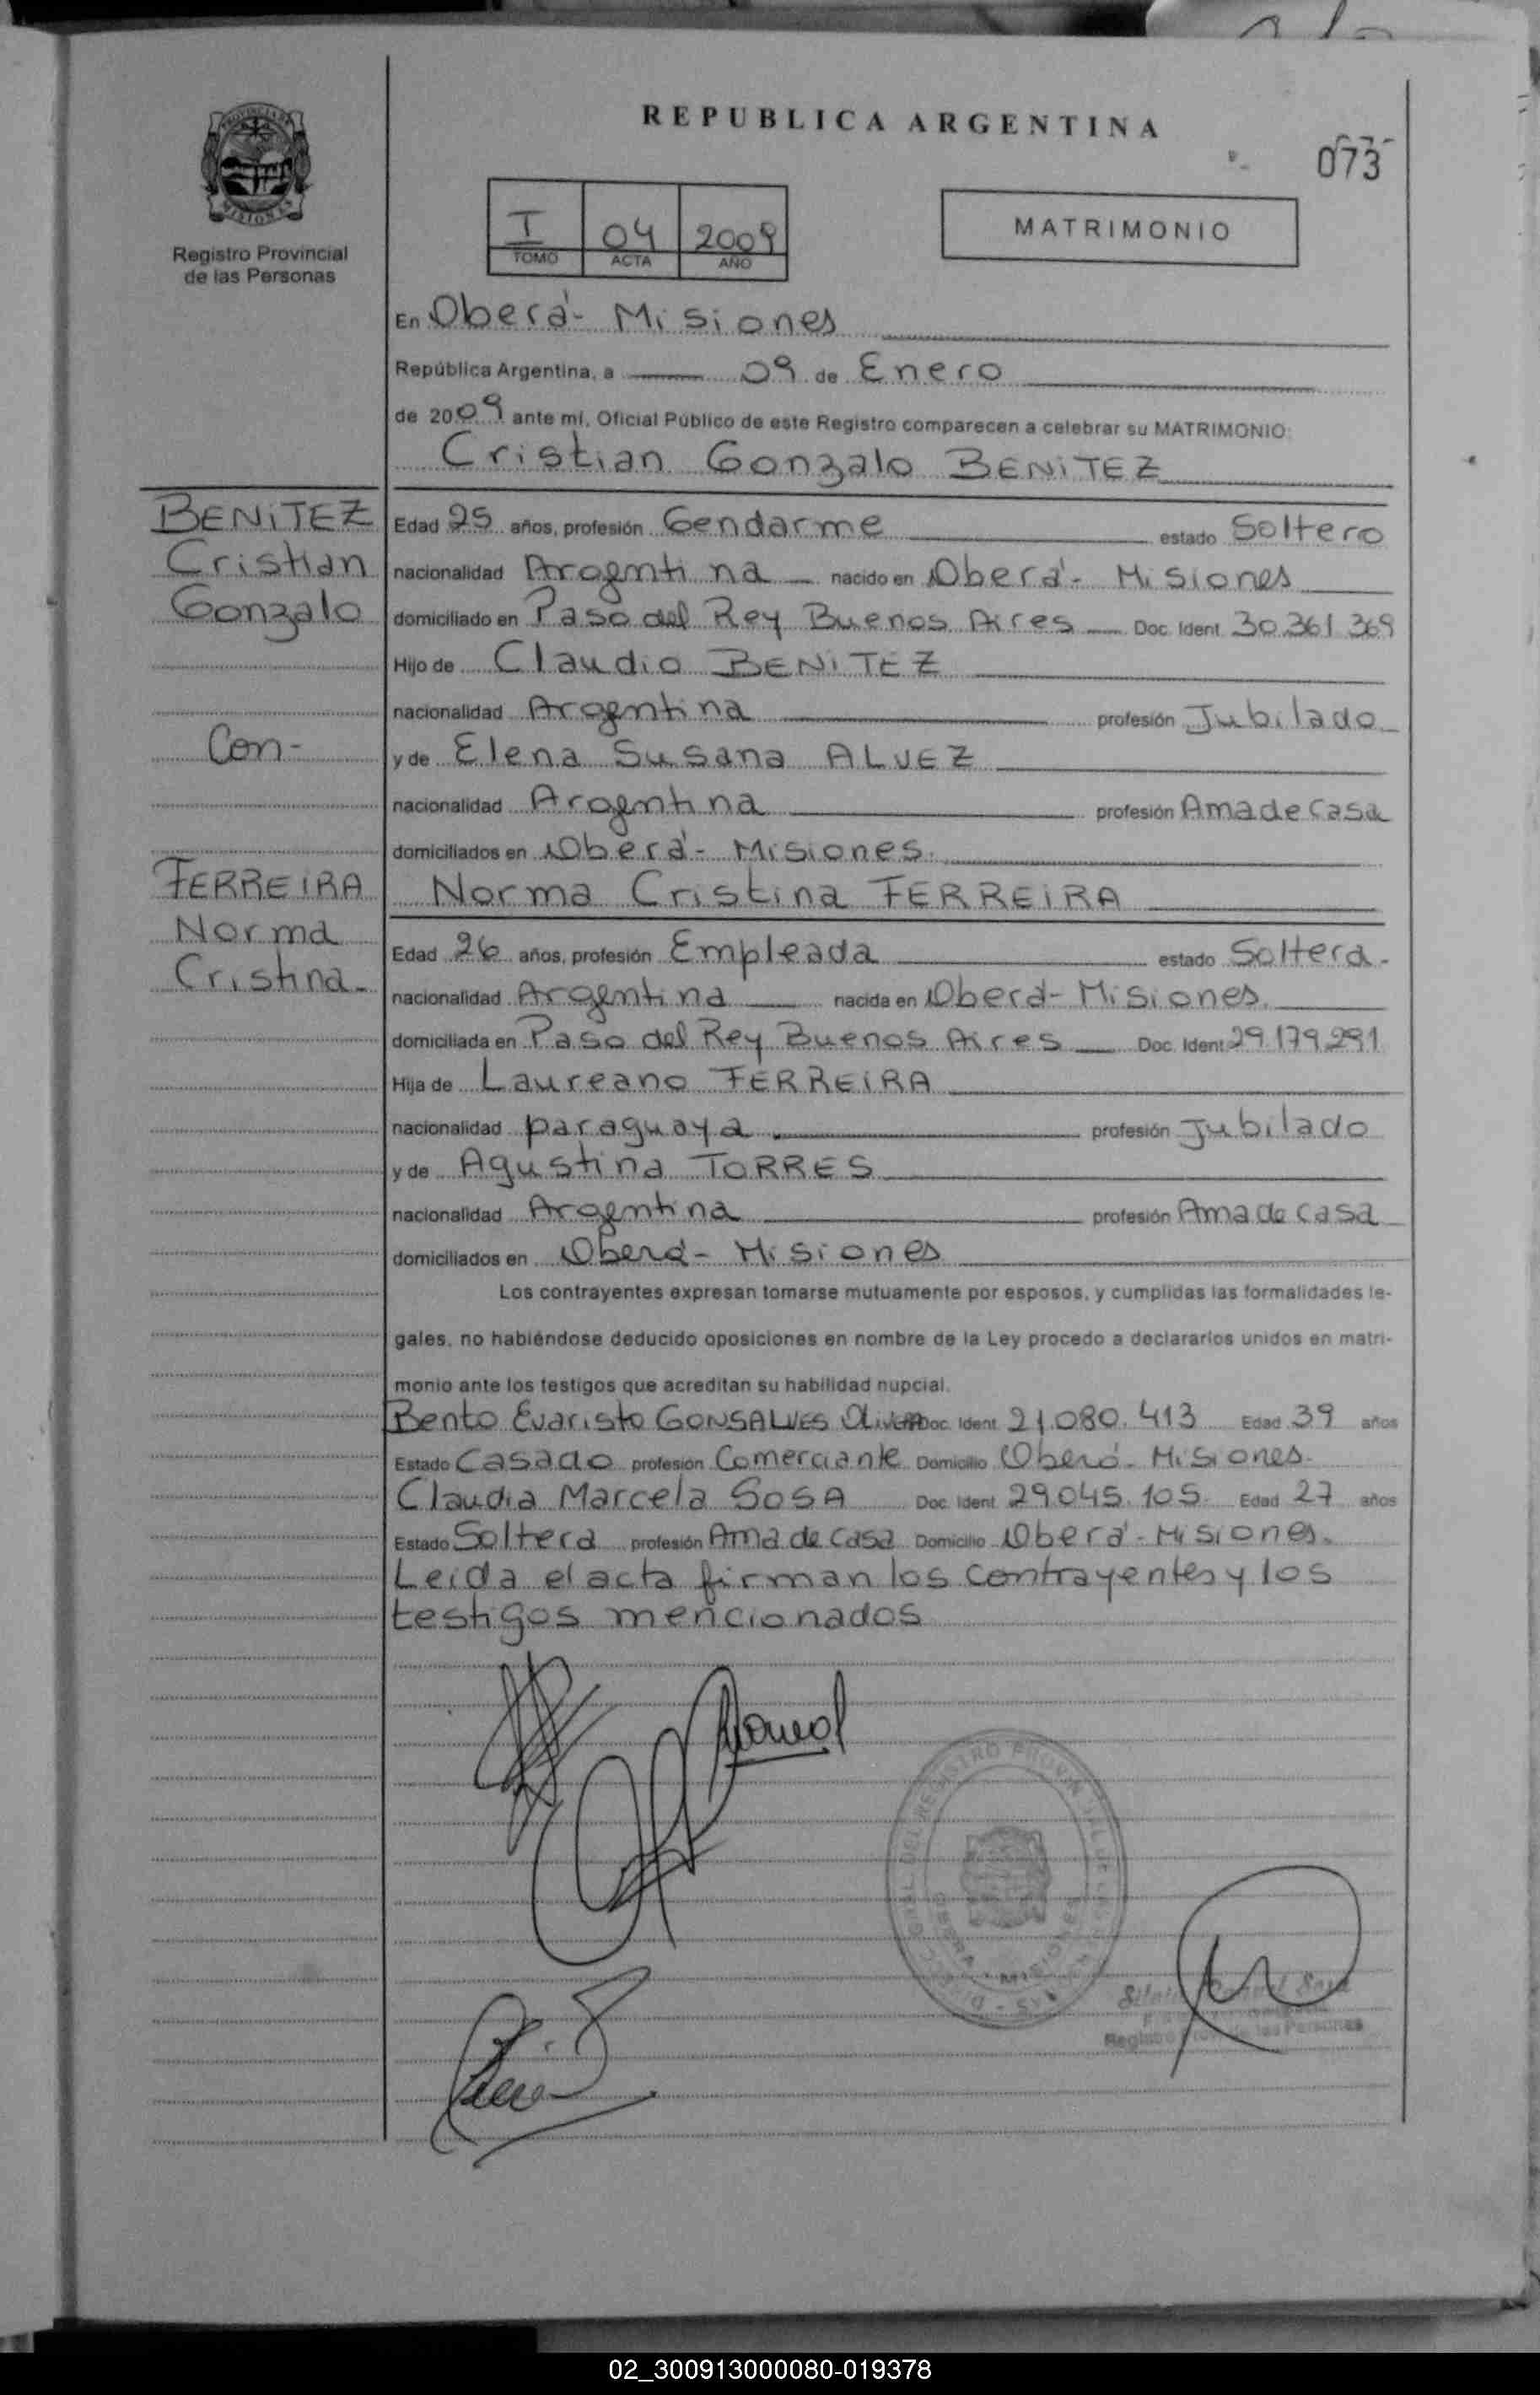 REPUBLICA ARGENTINA
073
Registro Provincial
de las Personas
I 04 2009
TOMO ACTA AÑO
MATRIMONIO
En Oberá - Misiones
República Argentina, a 09 de Enero
de 2009 ante mí, Oficial Público de este Registro comparecen a celebrar su MATRIMONIO:
Cristian Gonzalo BENiTEZ
BENiTEZ
Cristian
Gonzalo
Con-
FERREIRA
Norma
Cristina-
Edad 25 años, profesión Gendarme estado Soltero
nacionalidad Argentina nacido en Oberá - Misiones
domiciliado en Paso del Rey Buenos Aires Doc. Ident. 30.361.369
Hijo de Claudio BENiTEZ
nacionalidad Argentina profesión Jubilado
y de Elena Susana ALVEZ
nacionalidad Argentina profesión Ama de Casa
domiciliados en Oberá - Misiones.
Norma Cristina FERREiRA
Edad 26 años, profesión Empleada estado Soltera.
nacionalidad Argentina nacida en Oberá - Misiones
domiciliada en Paso del Rey Buenos Aires Doc. Ident. 29.179.291
Hija de Laureano FERREiRA
nacionalidad paraguaya profesión Jubilado
y de Agustina TORRES
nacionalidad Argentina profesión Ama de casa
domiciliados en Oberá - Misiones
Los contrayentes expresan tomarse mutuamente por esposos, y cumplidas las formalidades le-
gales, no habiéndose deducido oposiciones en nombre de la Ley procedo a declararlos unidos en matri-
monio ante los testigos que acreditan su habilidad nupcial.
Bento Evaristo GONSALVES Doc. Ident. 21.080.413 Edad 39 años
Estado Casado profesión Comerciante Domicilio Oberá - Misiones.
Claudia Marcela SOSA Doc. Ident. 29.045.105. Edad 27 años
Estado Soltera profesión Ama de Casa Domicilio Oberá - Misiones.
Leida el acta firman los contrayentes y los
testigos mencionados
Registro las Personas
02_300913000080-019378